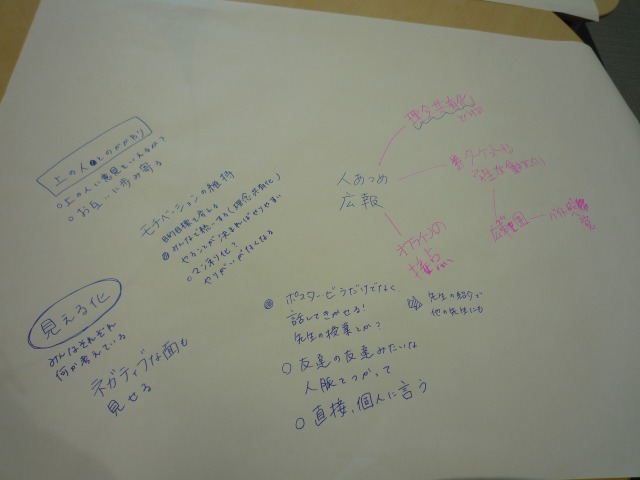 上の人とのつながり
○上の人に意見をいえるか?
○お互いに歩み寄る
モチベーションの維持
目的目標で考える
◎みんなで統一する(理念共有化)
やることが決まればやりやすい
○マンネリ化?
やりがいがなくなる
見える化
みんなそれぞれ
何が考えている
ネガティブな面も
見せる
人あつめ
広報
理念共有化
ターゲット
オフラインの
接点
広報範囲
◎ポスター・ビラだけでなく
話してきかせる!
先生の授業とか?
⇨先生の紹介で
他の先生にも
○友達の友達みたいな
人脈でつがって
○直接、個人に言う